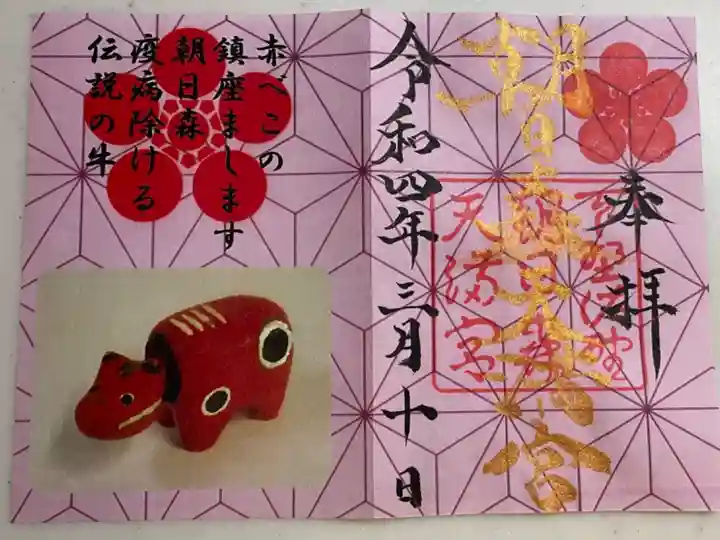 奉拝
朝日森天満宮
朝日森
天満宮
令和四年三月十日
赤べこの
鎮座まします
朝日森
疫病除ける
伝説の牛